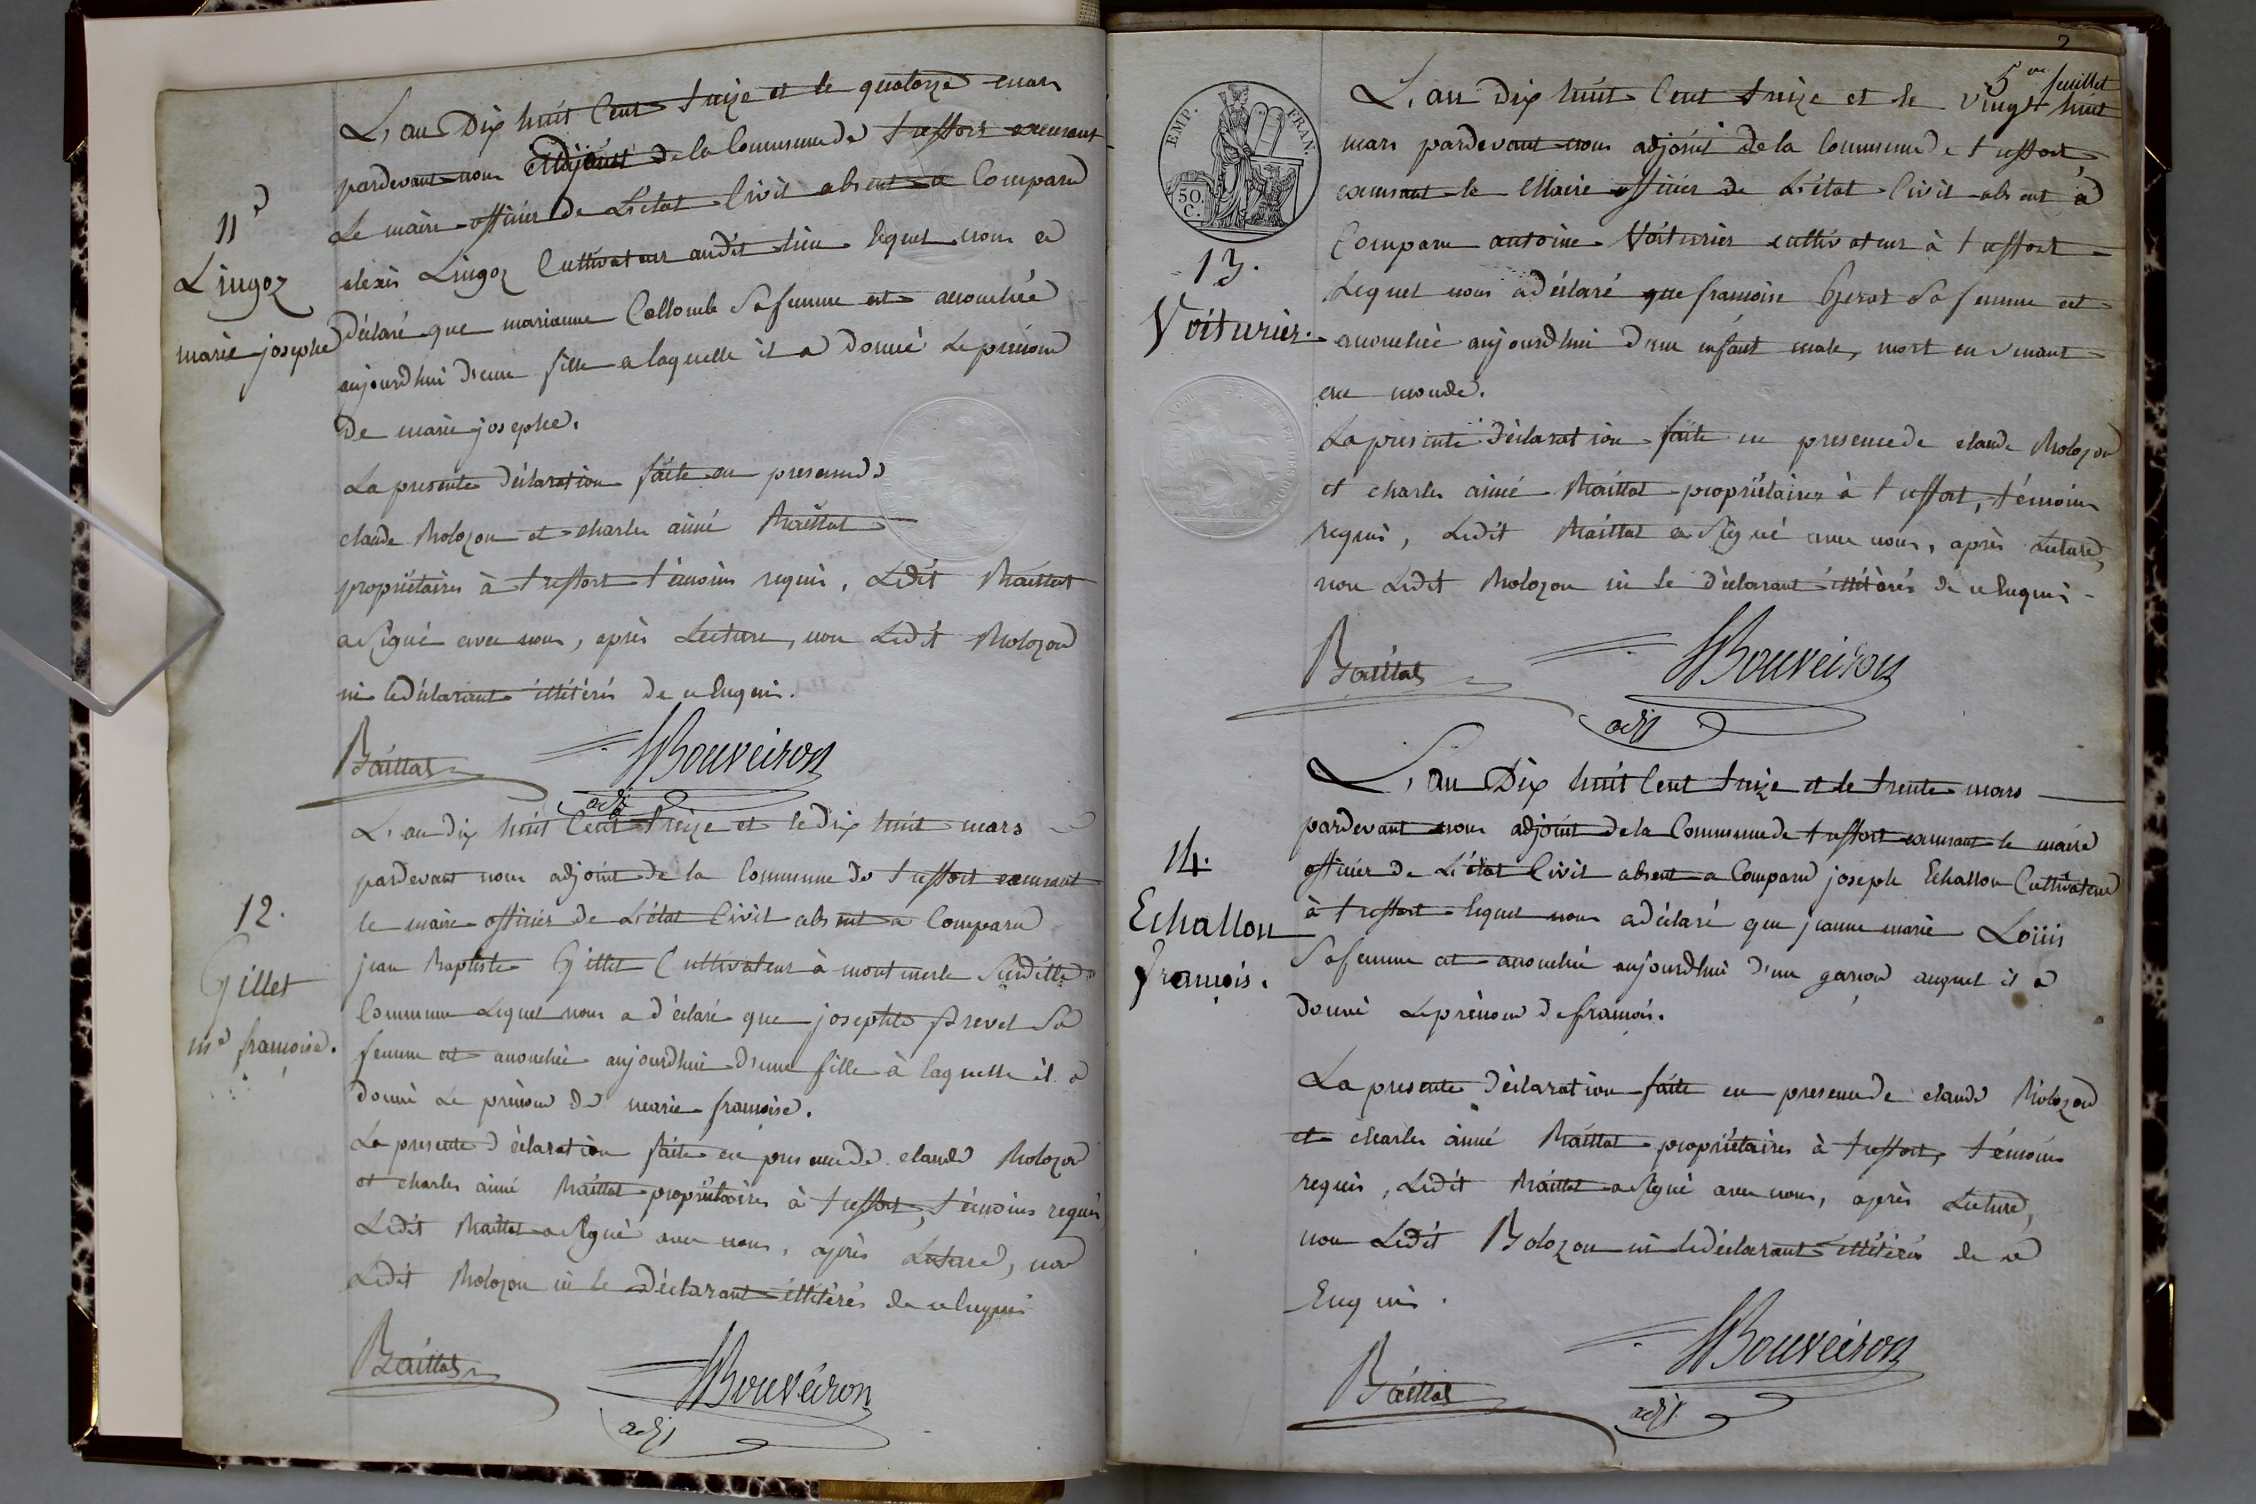 11e
Lingoz
marie josephe
L'an Dix huit Cent treize et le quatorze mars
pardevant nous adjoint de la Commune de treffort exerçant
Le maire officier de L'état Civil absent a Comparu
alexis Lingoz Cultivateur audit lieu lequel nous a
déclaré que marianne Collomb Sa femme est accouchée
aujourdhui d'une fille a laquelle il a donné Le prénom
De marie josephe.
La presente déclaration faite en presence de
claude Bolozon et charles aimé Baillat
propriétaires à treffort témoins requis, Ledit Baillat
a signé avec nous, après Lecture, non Ledit Bolozon
ni le déclarant illitérés de ce Enquis.
Baillat
Bouveiron
adj
12.
Gillet
me françoise.
L'an dix huit Cent treize et le dix huit mars
pardevant nous adjoint de la Commune de treffort exerçant
le maire officier de L'état Civil absent a Comparu
jean Baptiste Gillet Cultivateur à montmerle Susditte
Commune Lequel nous a déclaré que josephte prevel Sa
femme est accouchée aujourdhui D'une fille à laquelle il a
donné Le prénom De marie françoise.
La presente déclaration faite en presence de claude Bolozon
et charles aimé Baillat propriétaires à treffort, témoins requis
Ledit Baillat a signé avec nous, après Lecture, non
Ledit Bolozon ni le Déclarant illitérés de ce Enquis
Baillat
Bouveiron
adj
2
5me feuillet
EMP. FRAN.
50. C.
13.
Voiturier.
L'an dix huit Cent treize et le vingt huit
mars pardevant nous adjoint de la Commune de treffort
exerçant le Maire officier de L'état Civil absent a
Comparu antoine Voiturier cultivateur à treffort
Lequel nous a déclaré que françoise Gerot Sa femme est
accouchée aujourdhui d'un enfant male, mort en venant
au monde.
La presente déclaration faite en presence de claude Bolozon
et charles aimé Baillat propriétaires à treffort, témoins
requis, Ledit Baillat a signé avec nous, après Lecture,
non Ledit Bolozon ni le déclarant illitérés de ce Enquis
Baillat
Bouveiron
adj
14.
Echallon
françois.
L'an Dix huit Cent treize et le trente mars
pardevant nous adjoint de la Commune de treffort exerçant le maire
officier de L'état Civil absent a Comparu joseph Echallon Cultivateur
à treffort lequel nous a déclaré que jeanne marie Loüis
Sa femme est accouchée aujourdhui d'un garçon auquel il a
donné Le prénom de françois.
La presente déclaration faite en presence de claude Bolozon
et charles aimé Baillat propriétaires à treffort, témoins
requis, Ledit Baillat a signé avec nous, après Lecture,
non Ledit Bolozon ni le déclarant illitérés de ce
Enquis.
Baillat
Bouveiron
adjt